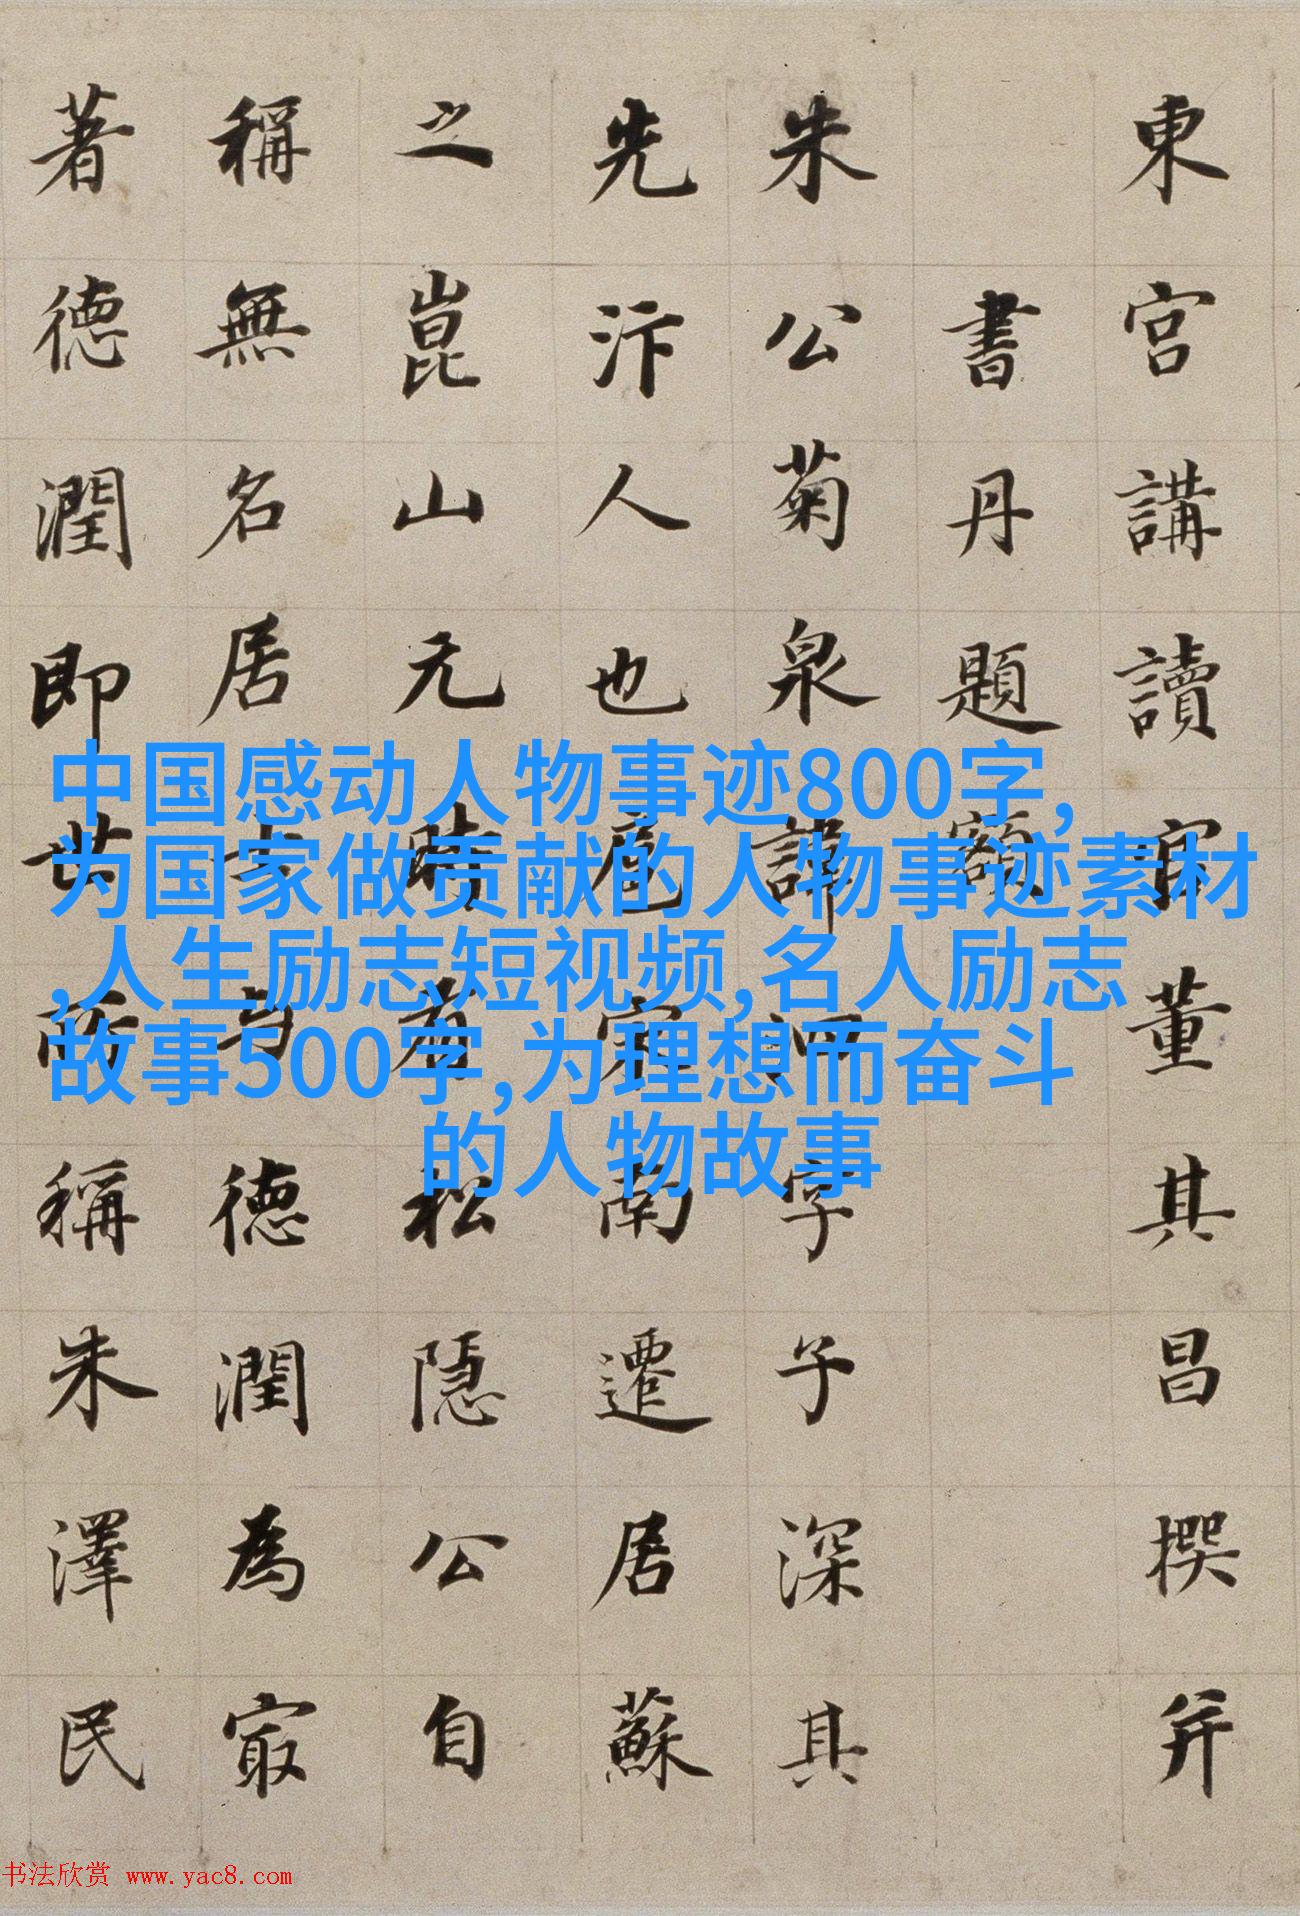 東宮講讀官董其昌撰并
書丹題額
朱公菊泉諱泗字子深其
先汴人也扈宋南遷居蘇
之崑山元時有松隱公自
稱無名居士與德潤為冣
著德潤即世所稱朱澤民
中国感动人物事迹800字,
为国家做贡献的人物事迹素材
,人生励志短视频,名人励志
故事500字,为理想而奋斗
的人物故事
书法欣赏 www.yac8.com